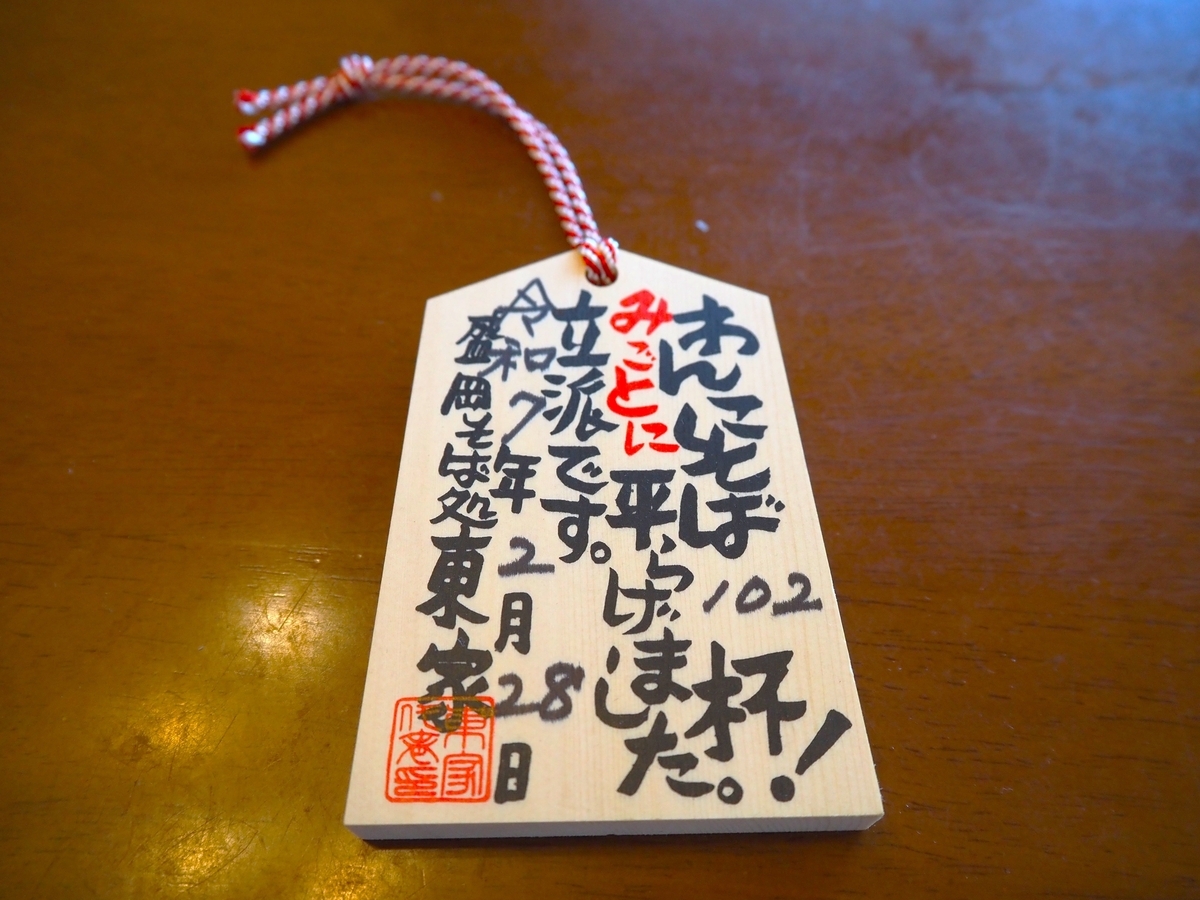 わんこそば102杯！
みごとに平らげました。
立派です。
令和7年2月28日
盛岡そば処東家